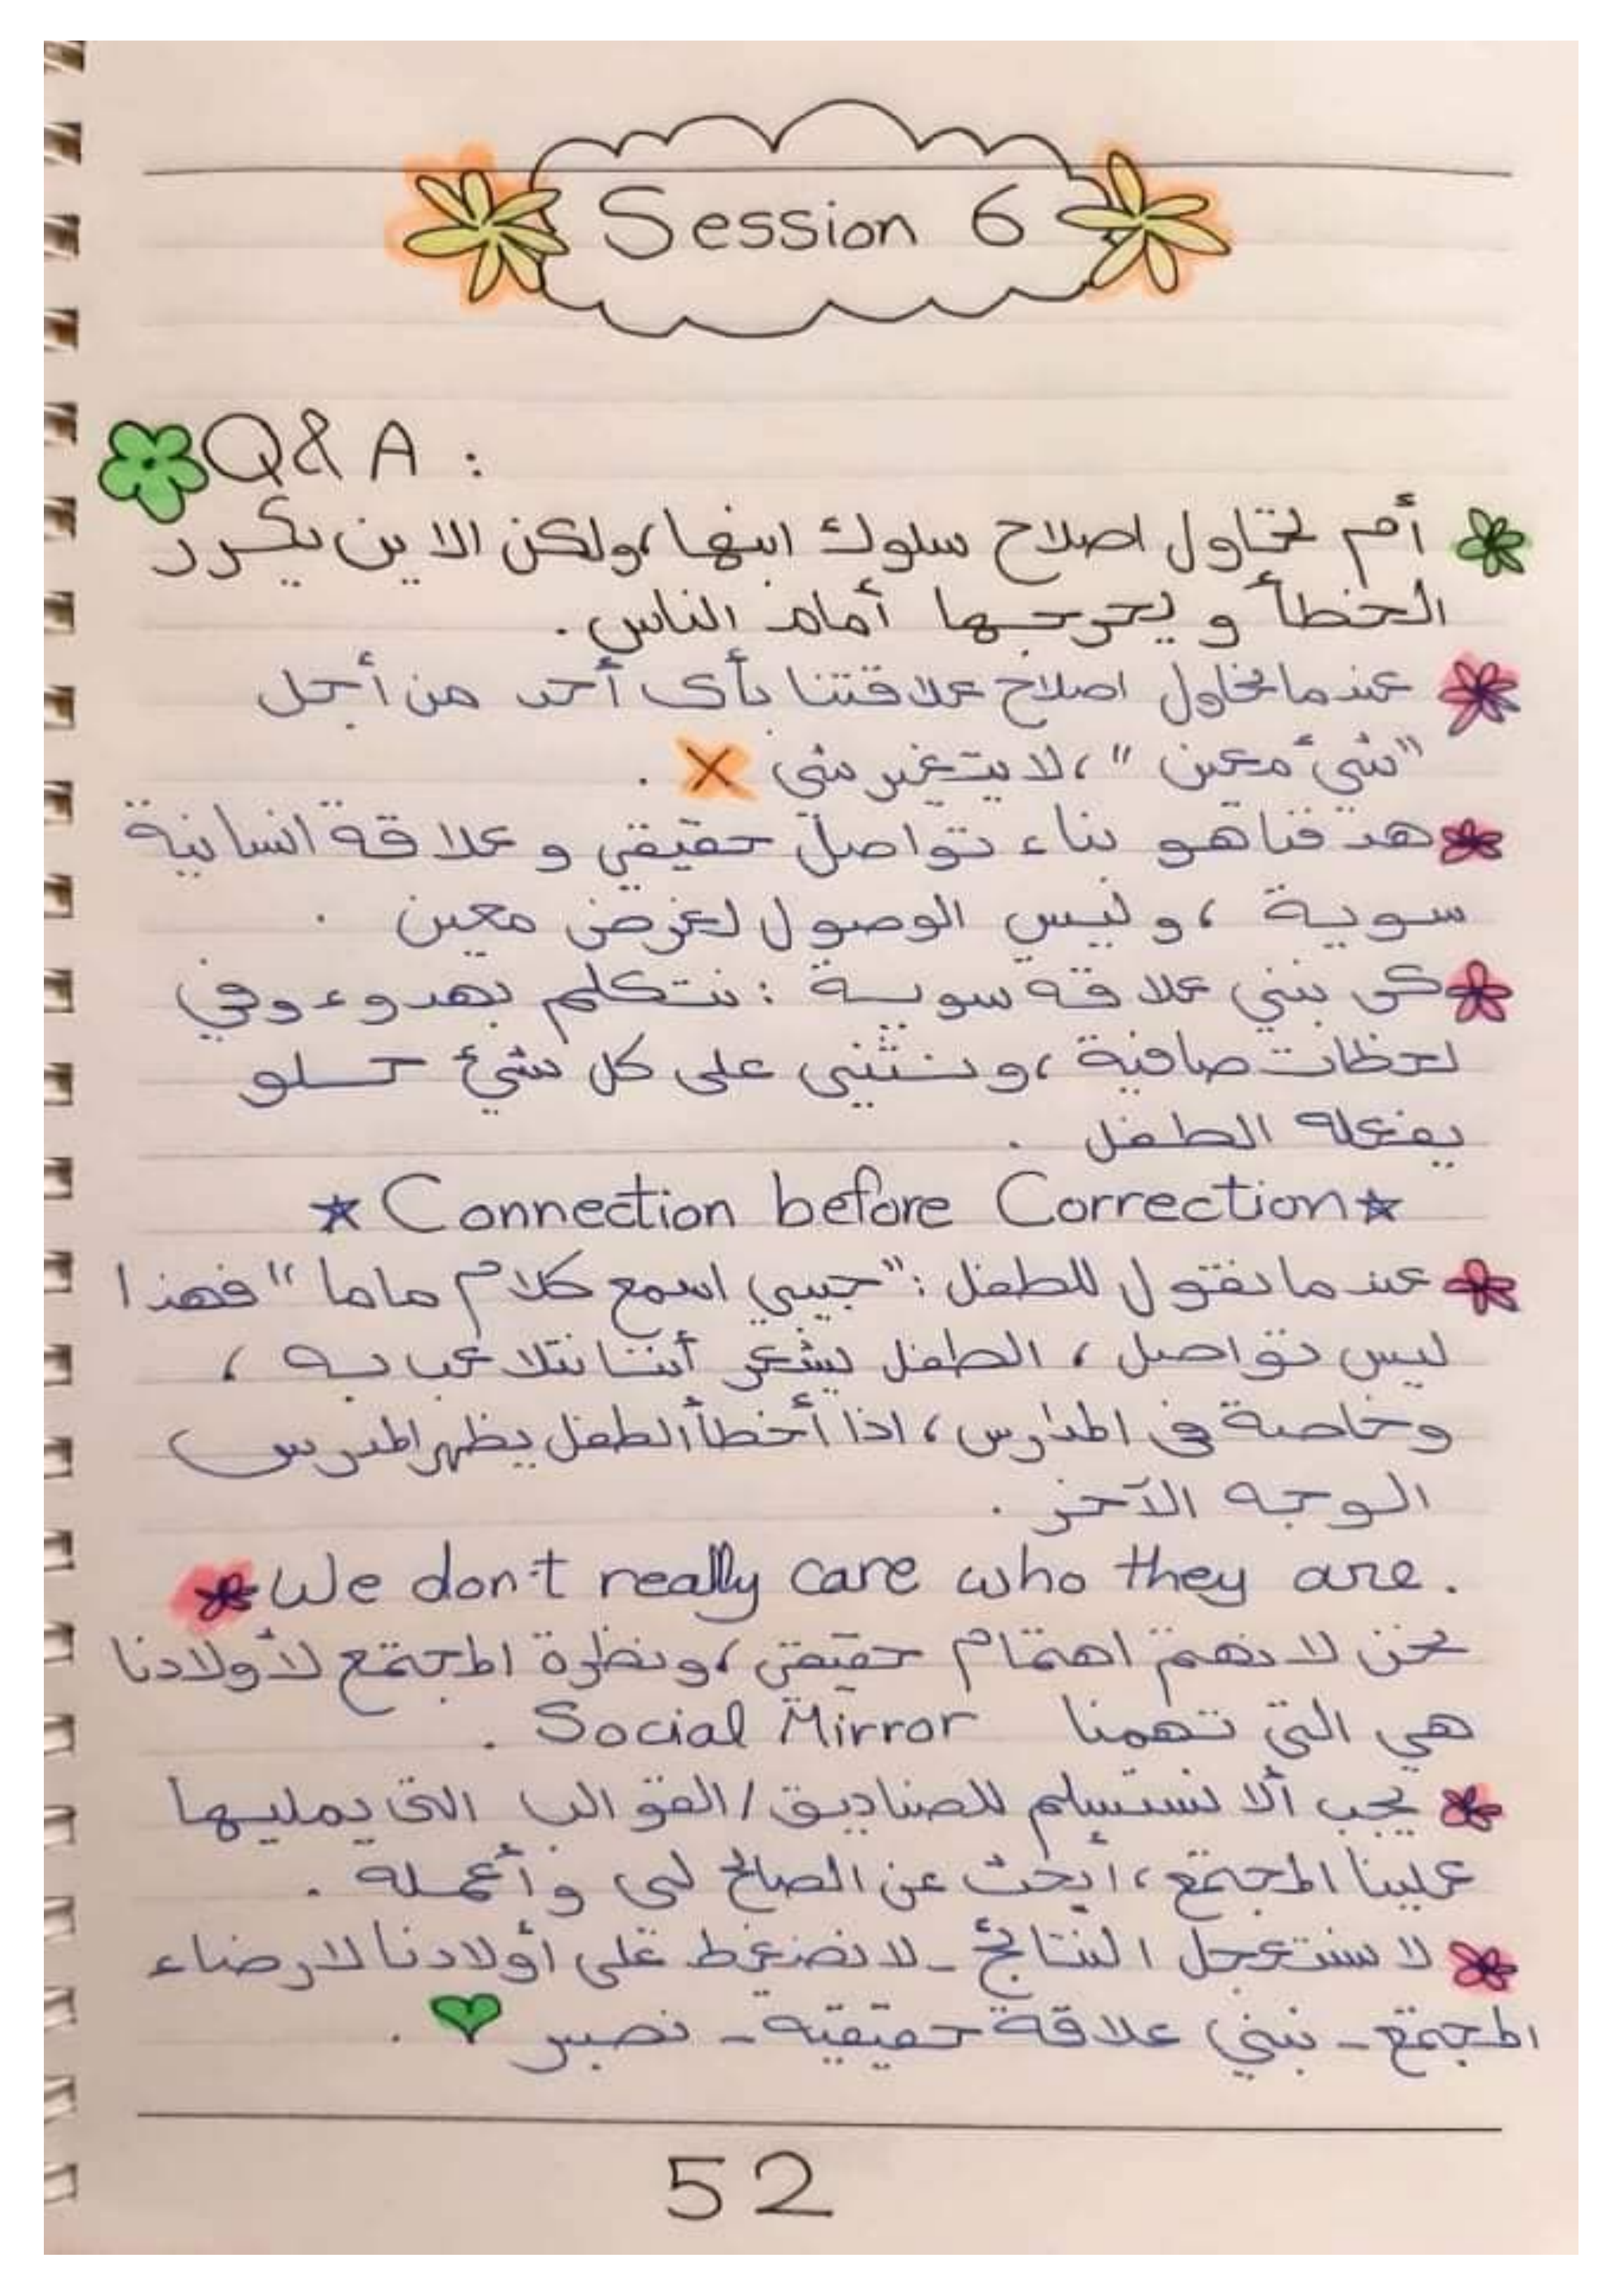 Session 6
Q & A :
أم تحاول اصلاح سلوك ابنها، ولكن الابن يكرر
الخطأ و يحرجها أمام الناس .
عندما نحاول اصلاح علاقتنا بأى أحد من أجل
"شئ معين "، لا يتغير شئ X .
هدفنا هو بناء تواصل حقيقى و علاقة انسانية
سوية ، وليس الوصول لغرض معين .
كى نبني علاقة سوية : نتكلم بهدوء وفي
لحظات صافية ، ونثنى على كل شئ حلو
يفعله الطفل .
Connection before Correction
عندما نقول للطفل : "حبيبي اسمع كلام ماما " فهذا
ليس تواصل ، الطفل يشعر أننا نتلاعب به ،
وخاصة فى المدارس ، اذا أخطأ الطفل يظهر المدرس
الوجه الآخر .
We don't really care who they are.
نحن لا نهتم اهتمام حقيقى ، ونظرة المجتمع لأولادنا
هي التى تهمنا Social Mirror .
يجب ألا نستسلم للصناديق / القوالب التى يمليها
علينا المجتمع ، أبحث عن الصالح لى وأعمله .
لا نستعجل النتائج - لا نضغط على أولادنا لارضاء
المجتمع - نبني علاقة حقيقية - نصبر .
52